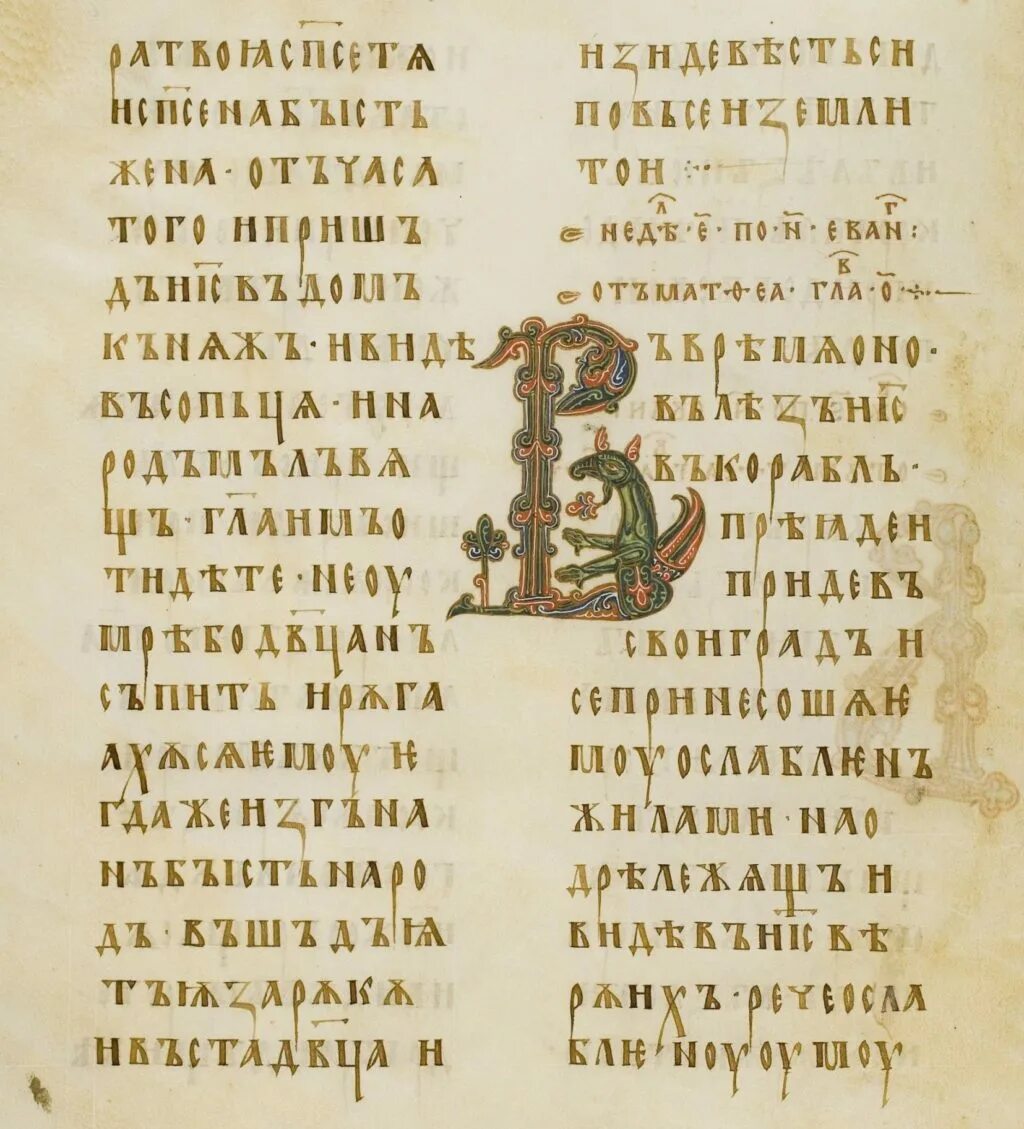 ра твоꙗ сп҃се тѧ
и сп҃сена бꙑсть
жена · отъ часа
того и приш҄ъ
дъ и іс҃ въ домъ
кънѧжь · и видѣ
въ сопьцѧ · и на
родъ мълъвѧ
щь · гл҃а имъ о
тидѣте · не оу
мрѣ бо дв҃ца нъ
съпить и рѫга
ахѫ сѧ ѥмоу ѥ
гда же изгъна
нъ бꙑсть наро
дъ · въшьдъ ꙗ
тъ ѭ за рѫкѫ
и въста дв҃ца и
изиде вѣсть си
по вьсеи земли
тои ⁘
недѣл · е҃ · по · н҃ · еван҃г :
отъ матѳеа · глав · о҃ ·
Въ врѣмѧ оно ·
вълѣзъ и іс҃
въ корабль ·
прѣꙗде и
приде въ
свои градъ и
се принесошѧ ѥ
моу ослаблѥнъ
жилами · на о
дрѣ лежѧщь и
видѣвъ и іс҃ вѣ
рѫ ихъ · рече осла
блѥноуоумоу